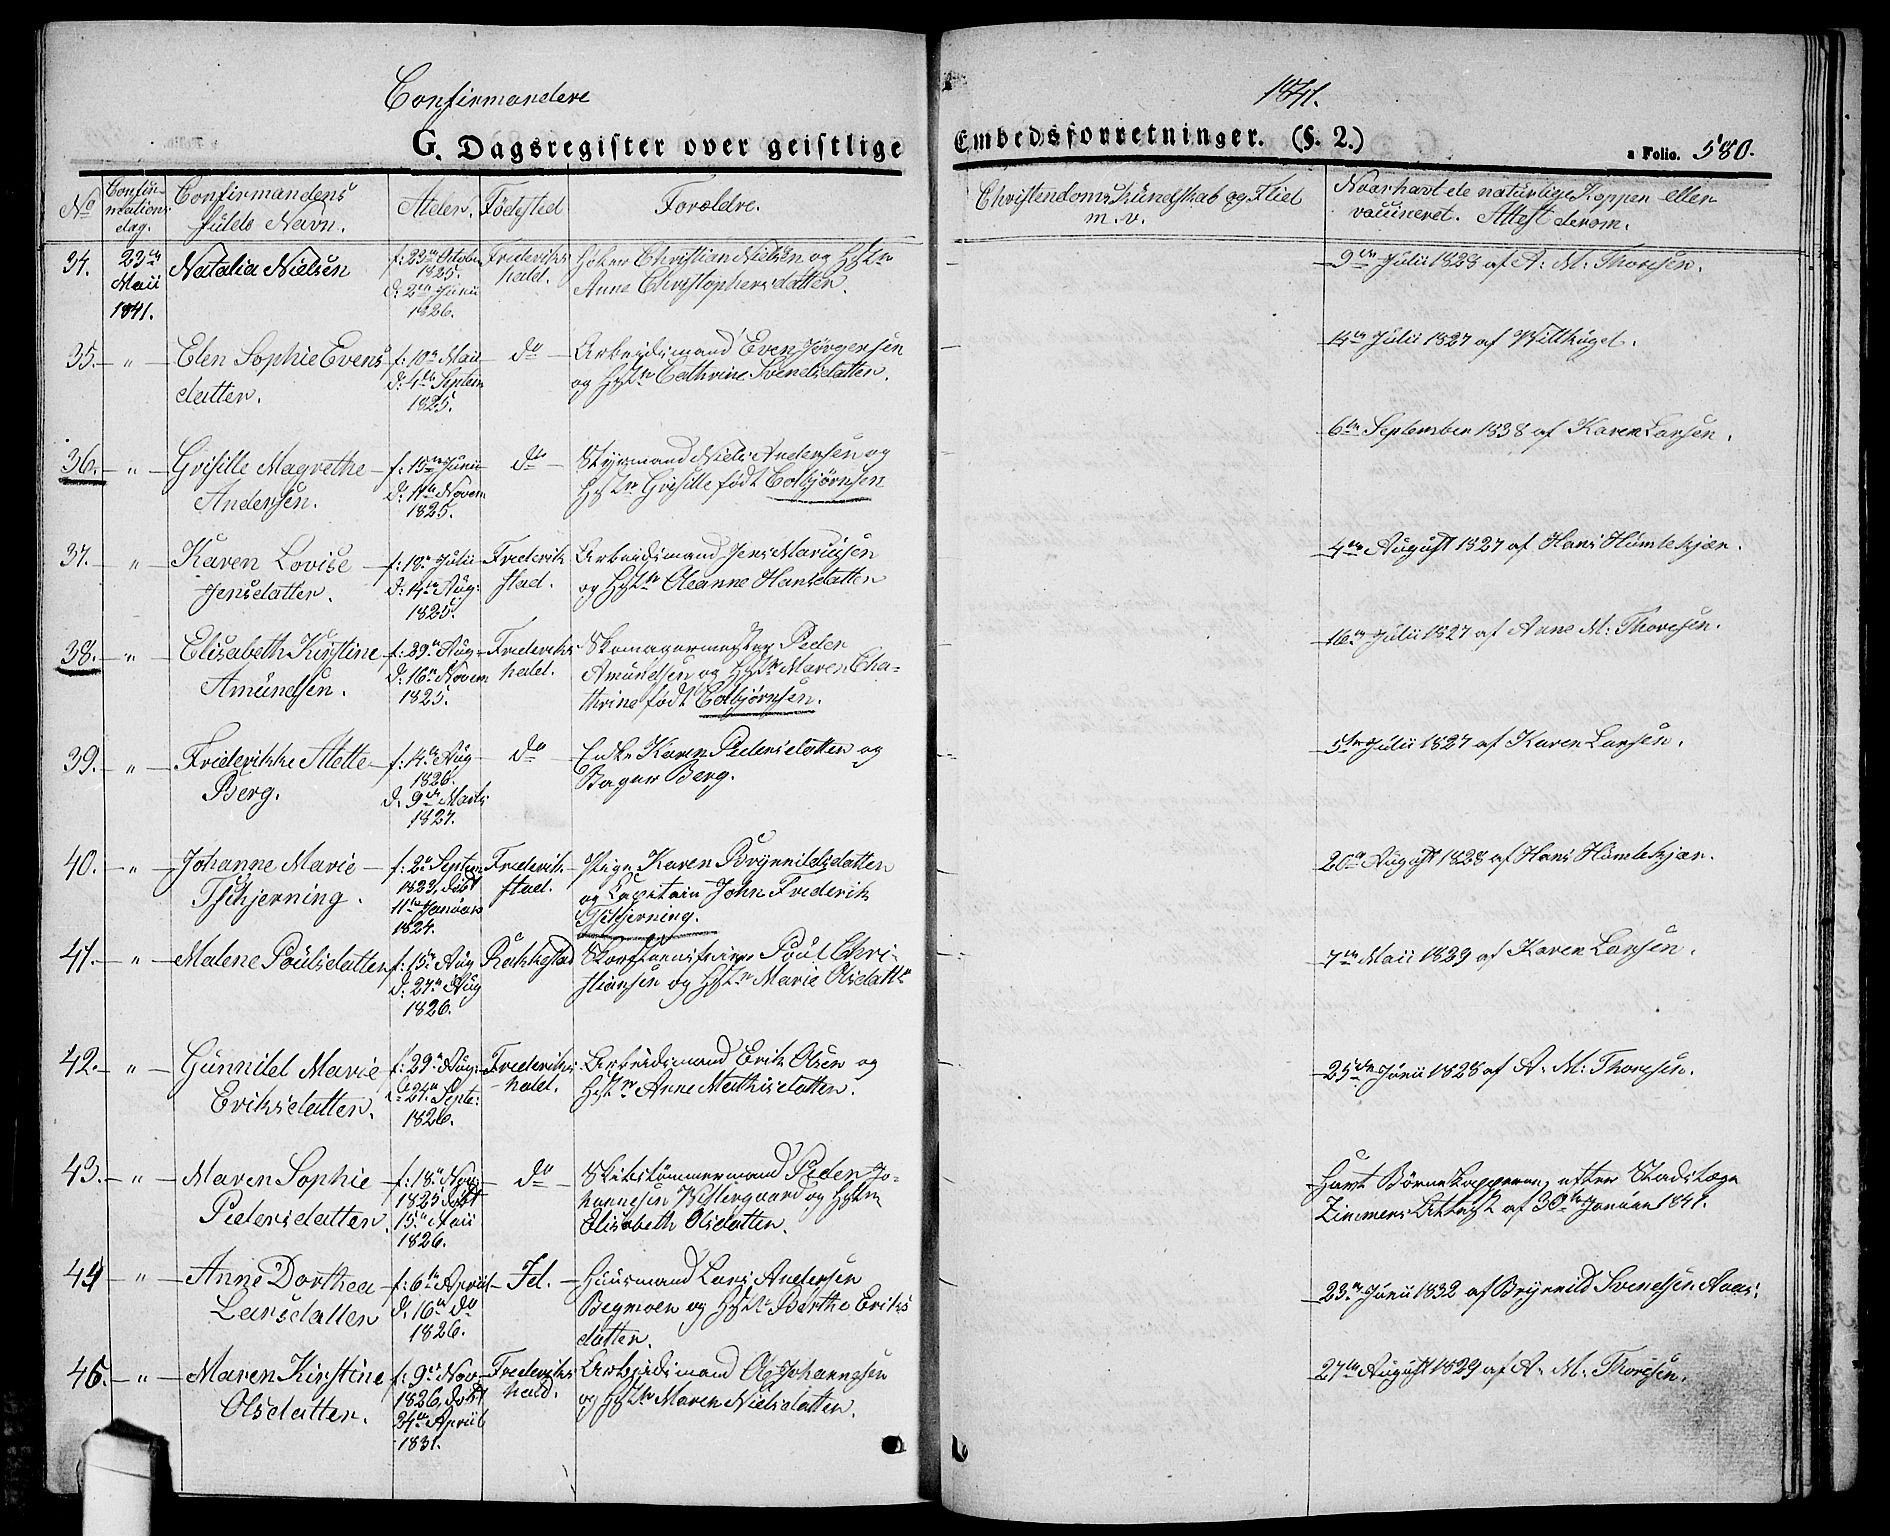 Confirmandere
1841.
G. Dagsregister over geistlige Embedsforretninger. (§. 2.)
a Folio. 580.
No
Confir-
mations
dag.
Confirmandens
fulde Navn.
Alder.
Fødested
Forældre.
Christendoms Kundskab og Fliid
m. v.
Naar havt de naturlige Kopper eller
vaccineret. Attest derom.
34.
23de
Maii
1841.
Natalia Nielsen
f: 23de Octobr
1825.
d: 2den Junii
1826.
Frederiks
hald.
Høker Christian Nielsen og Hstr
Anne Christophersdatter.
9de Julii 1828 af A. M. Thoresen.
35. " Elen Sophie Evens
datter.
f: 10de Maii
d: 4de Septem
1825.
do
Arbeidsmand Even Jørgensen
og Hstr Cathrine Svendsdatter.
14de Julii 1827 af Willhuget.
36. " Grisille Magrethe
Andersen.
f: 15de Junii
d: 11te Novem
1825.
do
Styrmand Niels Andersen og
Hstr Grisille født Colbjørnsen
6te September 1838 af Karen Larsen.
37. " Karen Lovise
Jensdatter.
f: 18de Julii
d: 14de Aug:
1825.
Frederik
stad.
Arbeidsmand Jens Mariusen
og Hstr Oleanne Hansdatter
4de August 1827 af Hans Humlekjær.
38. " Elisabeth Kirstine
Amundsen.
f: 29de Aug
d: 16de Novem
1825.
Frederiks
hald.
Skomagermester Peder
Amundsen og Hstr Maren Cha-
thrine født Colbjørnsen.
16de Julii 1827 af Anne M: Thoresen.
39. " Friderikke Alette
Berg.
f: 14de Aug
1826.
d: 9de Marts
1827.
do
Enke Karen Pedersdatter og
Bager Berg.
5te Julii 1827 af Karen Larsen.
40. " Johanne Marie
Tschjerning.
f: 2de Septem
1822, døbt
11te Januar
1824.
Frederik
stad.
Pige Karen Brynnildsdatter
og Capitain John Frederik
Tschjerning.
20de August 1828 af Hans Humlekjær.
41. " Malene Poulsdatter
f: 15de Aug
d: 27de Aug
1826.
Rakkestad
Skorsteensfeier Poul Chri-
stiansen og Hstr Marie Olsdattr
7de Maii 1829 af Karen Larsen.
42. " Gunnild Marie
Eriksdatter.
f: 29de Aug:
d: 24de Septe:
1826.
Frederiks
hald.
Arbeidsmand Erik Olsen og
Hstr Anne Mathisdatter.
25de Junii 1828 af A. M: Thoresen.
43. " Maren Sophie
Pedersdatter.
f: 18de Nov:
1825 døbt
15de Maii
1826.
do
Skibstømmermand Peder Jo-
hannesen Westergaard og Hstr
Elisabeth Olsdatter.
Havt Børnekopperne efter Stadslæge
Zimmers Attest af 30te Januar 1841.
44 " Anne Dorthea
Larsdatter
f: 6te April
d: 16de do
1826.
Id.
Huusmand Lars Andersen
Begmoen og Hstr Berthe Eriks
datter.
23de Junii 1832 af Brynnild Svendsen Aaas:
45. " Maren Kirstine
Olsdatter.
f: 9de Nov
1826, døbt
24de April
1831.
Frederiks
hald.
Arbeidsmand Ole Johannesen
og Hstr Maren Nielsdatter.
27de August 1829 af A. M: Thoresen.